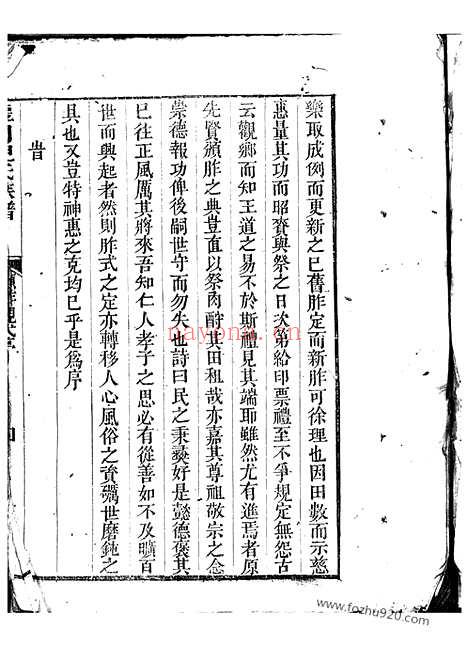 樂取成例而更新之已舊胙定而新胙可徐理也因田數而示慈
惠量其功而昭賚與祭之日次第給印票禮至不爭規定無怨古
云觀鄉而知王道之易不於斯禮見其端耶雖然尤有進焉者原
先賢頒胙之典豈直以祭肉酹其田租哉亦嘉其尊祖敬宗之念
崇德報功俾後嗣世守而勿失也詩曰民之秉彝好是懿德褒其
已往正風厲其將來吾知仁人孝子之思必有從善如不及曠百
世而興起者然則胙式之定亦轉移人心風俗之資礪世磨鈍之
具也又豈特神惠之克均已乎是爲序
旹
族譜
nayona.cn
www.fozhu920.com